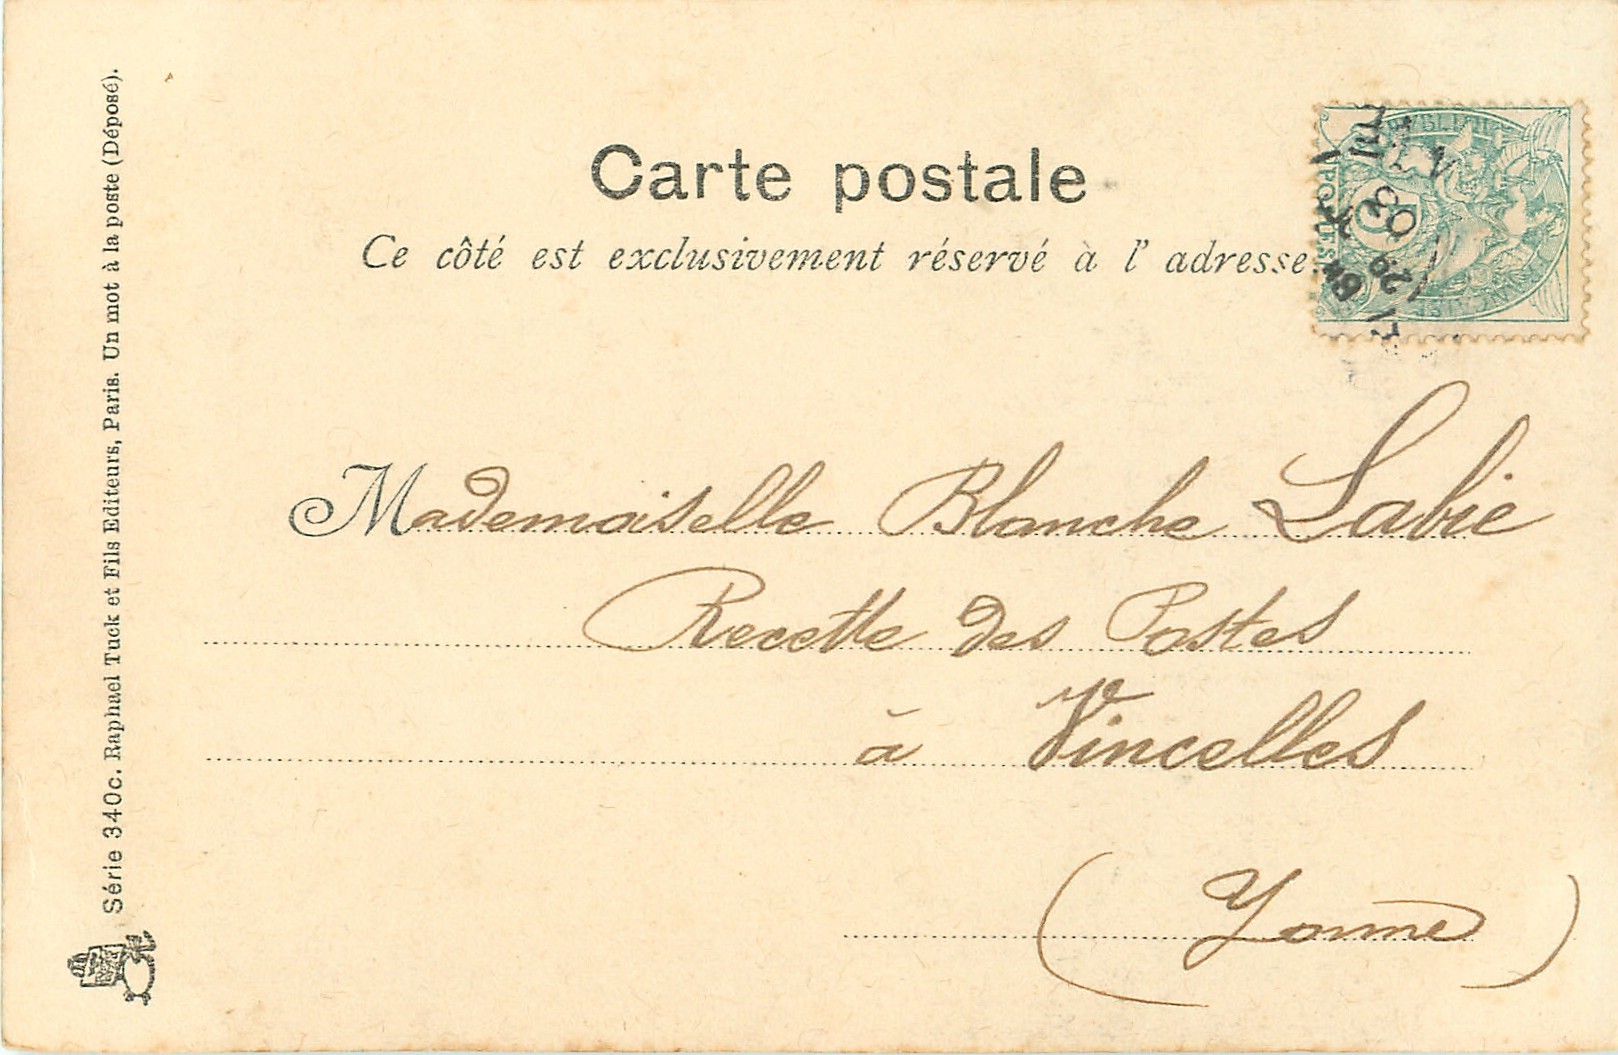 Carte postale
Ce côté est exclusivement réservé à l'adresse
Mademoiselle Blanche Labie
Recette des Postes
à Vincelles
(Yonne)
Série 340c. Raphael Tuck et Fils Editeurs, Paris. Un mot à la poste (Déposé).